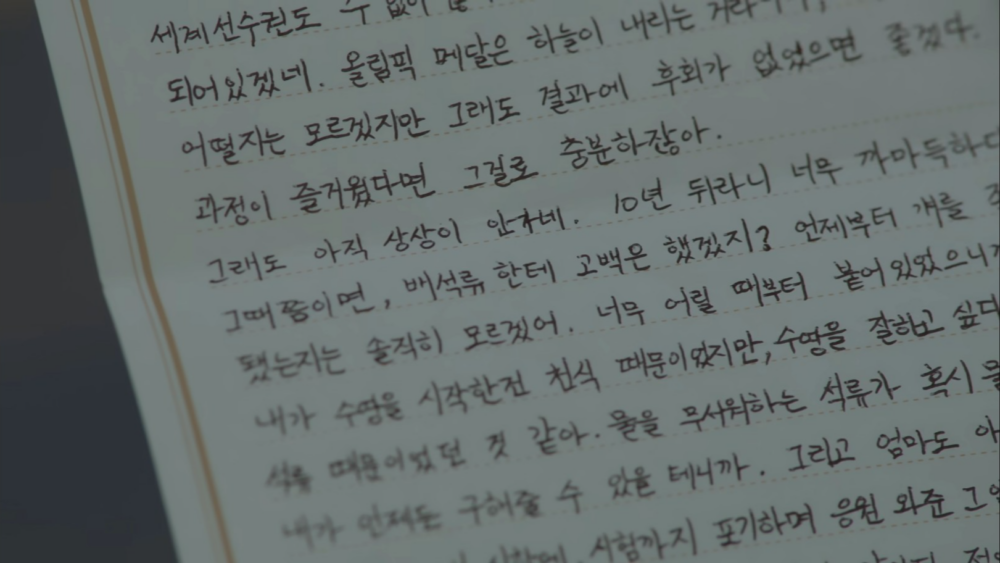 세계선수권도 수 없이
되어있겠네. 올림픽 메달은 하늘이 내리는 거라
어떨지는 모르겠지만 그래도 결과에 후회가 없었으면 좋겠다.
과정이 즐거웠다면 그걸로 충분하잖아.
그래도 아직 상상이 안가네. 10년 뒤라니 너무 까마득하다
그때쯤이면, 배석류한테 고백은 했겠지? 언제부터 걔를
됐는지는 솔직히 모르겠어. 너무 어릴 때부터 붙어있었으니까
내가 수영을 시작한건 천식 때문이었지만, 수영을 잘하고 싶다
석류 때문이었던 것 같아. 물을 무서워하는 석류가 혹시 물
내가 언제든 구해줄 수 있을 테니까. 그리고 엄마도
시험까지 포기하며 응원 와준 그